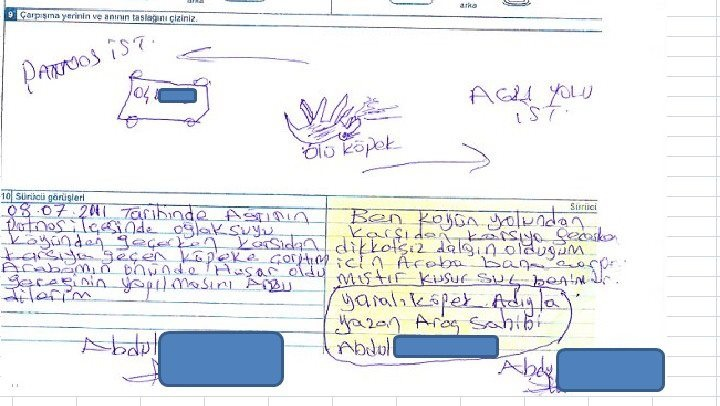 arka
arka
9 Çarpışma yerinin ve anının taslağını çiziniz.
PATNOS İST.
04
AGRI YOLU
İST.
ölü köpek
10 Sürücü görüşleri
08.07.2011 Tarihinde Agrının
Patnos ilçesinde oglaksuyu
köyünden geçerken karşıdan
karşıya geçen köpeke çarptım
Arabamın önünde Hasar oldu
gereğinin yapılmasını Arzu
dilerim
Abdul
Sürücü
Ben köyün yolundan
karşıdan karşıya geçerken
dikkatsiz dalgın olduğum
için Araba bana çarp
mıştır kusur suç benimdir.
yaralı köpek Adıyla
yazan Araç Sahibi
Abdul
Abdu